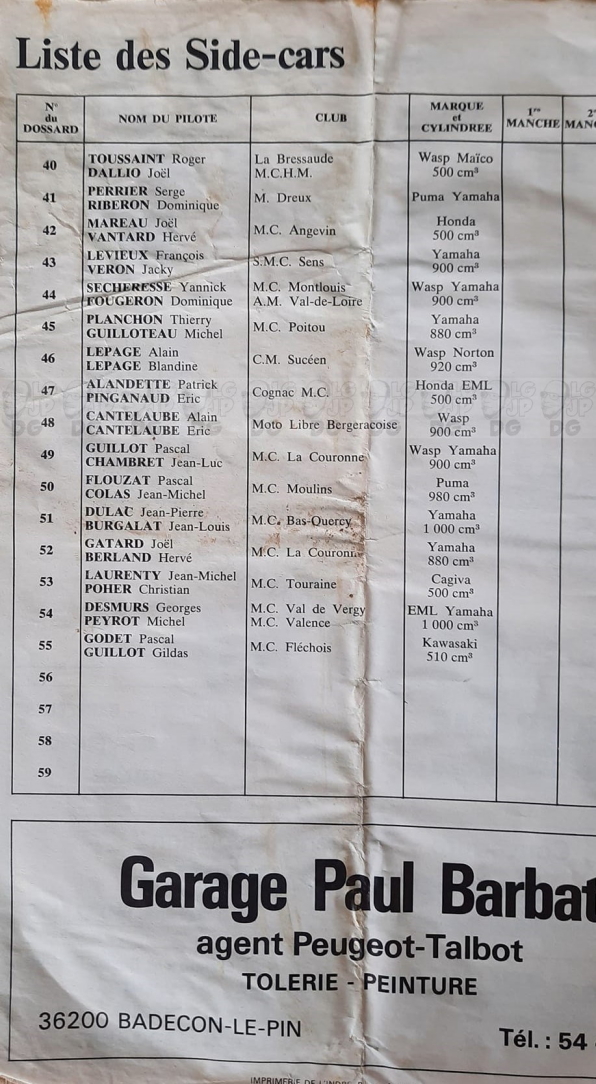 Liste des Side-cars
N° du DOSSARD NOM DU PILOTE CLUB MARQUE et CYLINDREE 1re MANCHE 2e
40 TOUSSAINT Roger La Bressaude Wasp Maïco
DALLIO Joël M.C.H.M. 500 cm³
41 PERRIER Serge M. Dreux Puma Yamaha
RIBERON Dominique
42 MAREAU Joël M.C. Angevin Honda
VANTARD Hervé 500 cm³
43 LEVIEUX François S.M.C. Sens Yamaha
VERON Jacky 900 cm³
44 SECHERESSE Yannick M.C. Montlouis Wasp Yamaha
FOUGERON Dominique A.M. Val-de-Loire 900 cm³
45 PLANCHON Thierry M.C. Poitou Yamaha
GUILLOTEAU Michel 880 cm³
46 LEPAGE Alain C.M. Sucéen Wasp Norton
LEPAGE Blandine 920 cm³
47 ALANDETTE Patrick Cognac M.C. Honda EML
PINGANAUD Eric 500 cm³
48 CANTELAUBE Alain Moto Libre Bergeracoise Wasp
CANTELAUBE Eric 900 cm³
49 GUILLOT Pascal M.C. La Couronne Wasp Yamaha
CHAMBRET Jean-Luc 900 cm³
50 FLOUZAT Pascal M.C. Moulins Puma
COLAS Jean-Michel 980 cm³
51 DULAC Jean-Pierre M.C. Bas-Quercy Yamaha
BURGALAT Jean-Louis 1 000 cm³
52 GATARD Joël M.C. La Couronne Yamaha
BERLAND Hervé 880 cm³
53 LAURENTY Jean-Michel M.C. Touraine Cagiva
POHER Christian 500 cm³
54 DESMURS Georges M.C. Val de Vergy EML Yamaha
PEYROT Michel M.C. Valence 1 000 cm³
55 GODET Pascal M.C. Fléchois Kawasaki
GUILLOT Gildas 510 cm³
56
57
58
59
Garage Paul Barbat
agent Peugeot-Talbot
TOLERIE - PEINTURE
36200 BADECON-LE-PIN
Tél. : 54
IMPRIMERIE DE L'INDRE